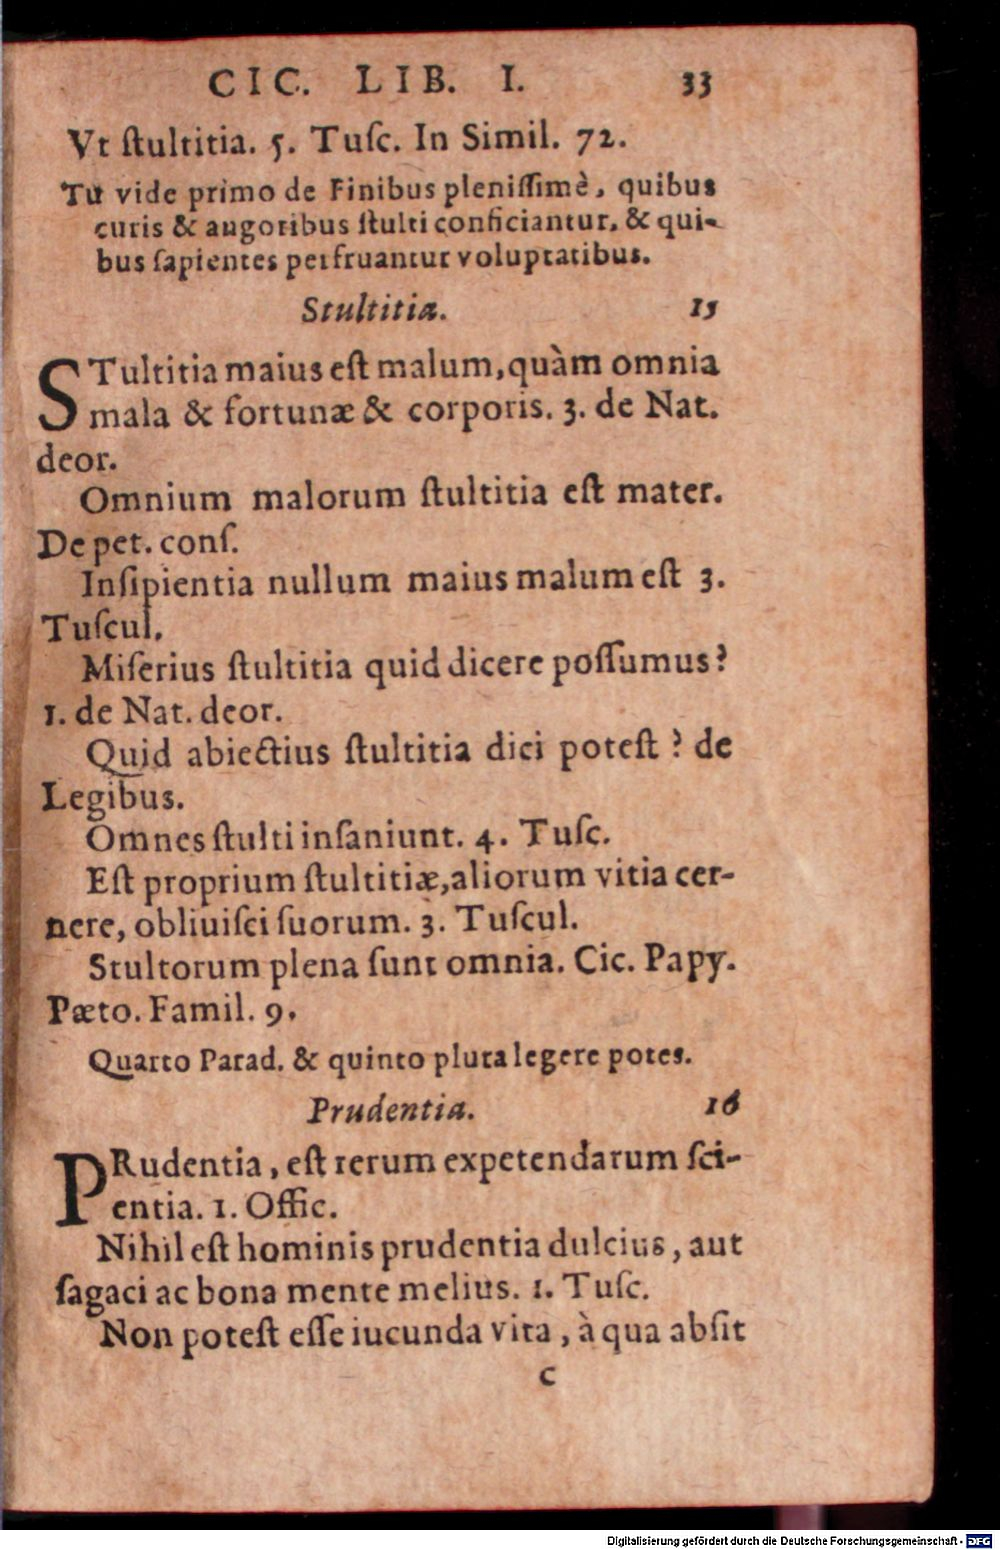 CIC. LIB. I. 33
Vt ſtultitia. 5. Tuſc. In Simil. 72.
Tu vide primo de Finibus pleniſſimè, quibus
curis & augoribus ſtulti conficiantur, & qui-
bus ſapientes perfruantur voluptatibus.
Stultitia. 15
STultitia maius eſt malum, quàm omnia
mala & fortunæ & corporis. 3. de Nat.
deor.
Omnium malorum ſtultitia eſt mater.
De pet. conſ.
Inſipientia nullum maius malum eſt 3.
Tuſcul.
Miſerius ſtultitia quid dicere poſſumus?
1. de Nat. deor.
Quid abiectius ſtultitia dici poteſt? de
Legibus.
Omnes ſtulti inſaniunt. 4. Tuſc.
Eſt proprium ſtultitiæ, aliorum vitia cer-
nere, obliuiſci ſuorum. 3. Tuſcul.
Stultorum plena ſunt omnia. Cic. Papy.
Pæto. Famil. 9.
Quarto Parad. & quinto plura legere potes.
Prudentia. 16
PRudentia, eſt rerum expetendarum ſci-
entia. 1. Offic.
Nihil eſt hominis prudentia dulcius, aut
ſagaci ac bona mente melius. 1. Tuſc.
Non poteſt eſſe iucunda vita, à qua abſit
C
Digitalisierung gefördert durch die Deutsche Forschungsgemeinschaft - DFG